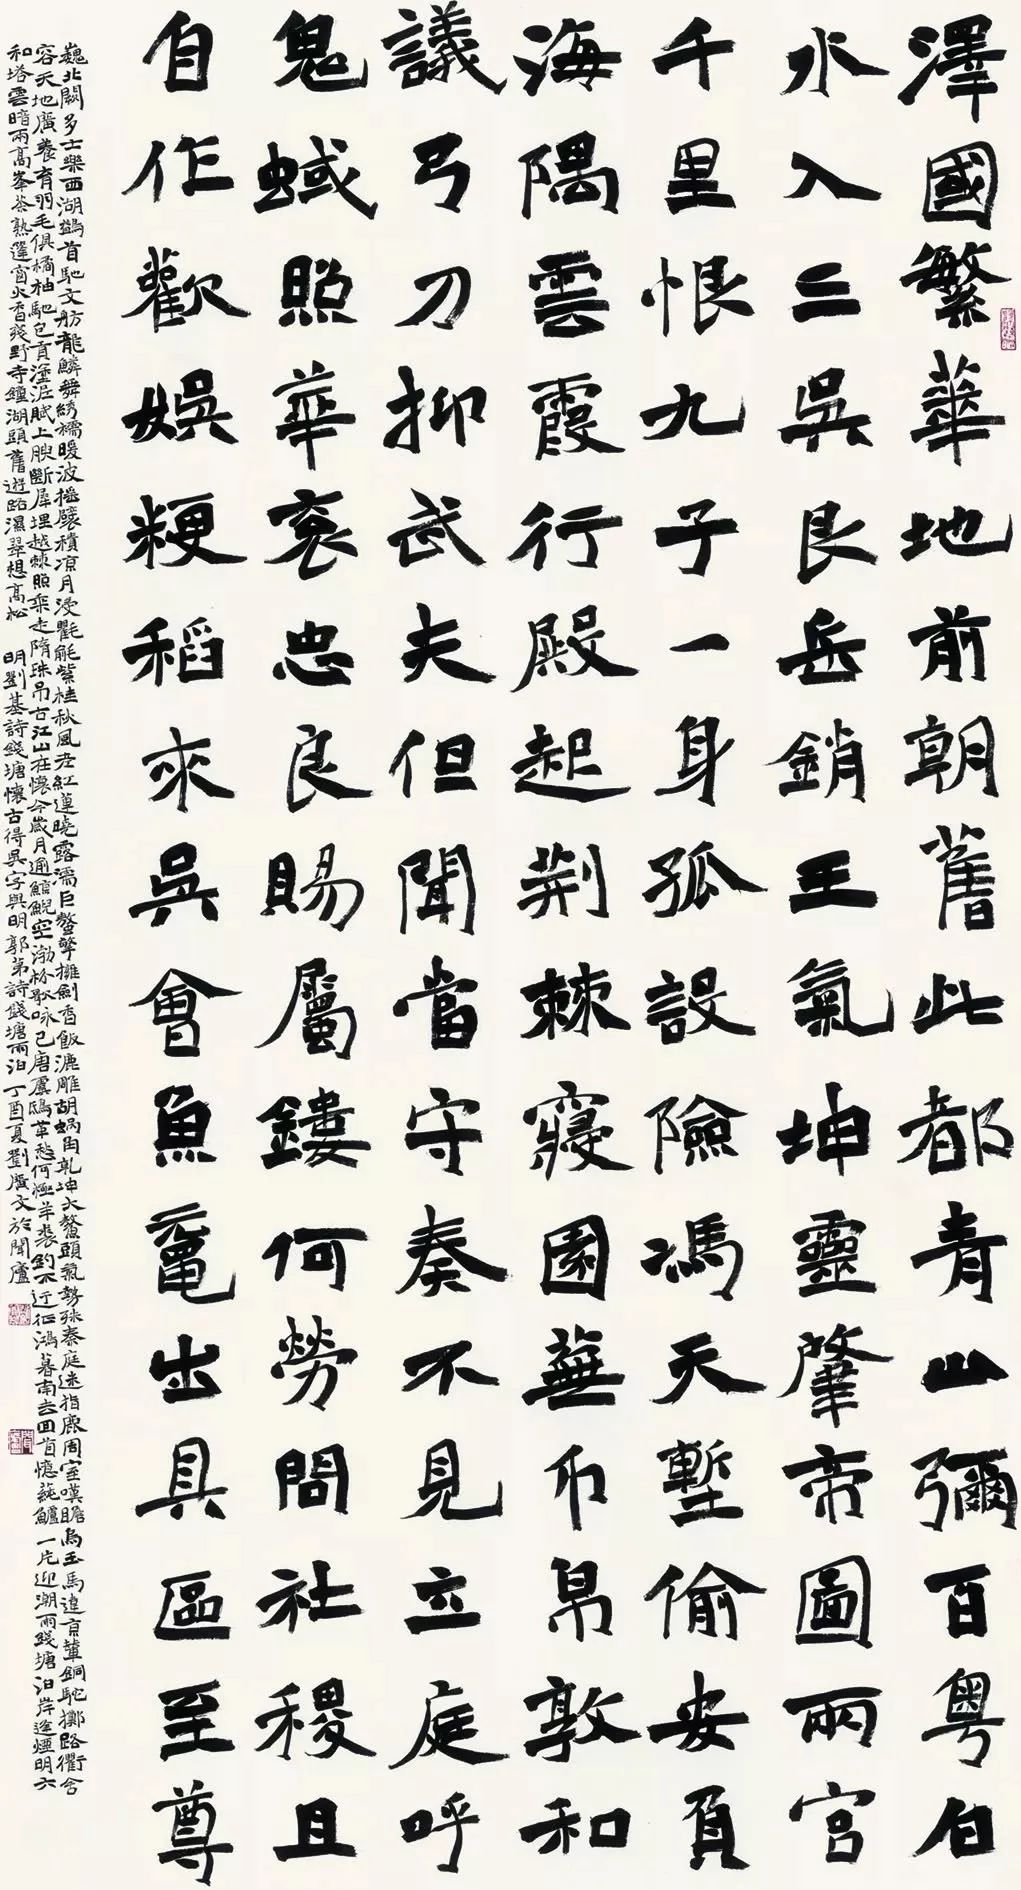 澤國繁華地前朝舊此都青山彌百粵白
水入三吳艮岳銷王氣坤靈肇帝圖兩宮
千里恨九子一身孤設險馮天塹偷安負
海隅雲霞行殿起荆棘寢園蕪币帛敦和
議弓刀抑武夫但聞當守奏不見立庭呼
鬼蜮照華衮忠良賜屬鏤何勞問社稷且
自作歡娛粳稻來吳會魚黿出具區至尊
巍北闕多士樂西湖鷁首馳文舫龍鱗舞綉襦暖波摇襞積凉月浸氍毹紫桂秋風老紅蓮曉露濡巨螯擎擁劍香飯漉雕胡蝸角乾坤大鰲頭氣勢殊秦庭迷指鹿周室嘆瞻烏玉馬違京輦銅駝擲路衢含
容天地廣養育羽毛俱橘柚馳包貢塗泥賦上腴斷犀埋越棘照乘走隋珠吊古江山在懷今歲月逾鯨鯢空渤澥歌咏已唐虞鴟革愁何極羊裘釣不迂征鴻暮南去回首憶蓴鱸 一片迎潮雨錢塘泊岸逢煙明六
和塔雲暗兩高峯茶熟篷窗火香殘野寺鐘湖頭舊遊路濕翠想高松 明劉基詩錢塘懷古得吳字與明郭第詩錢塘雨泊 丁酉夏劉廣文於聞廬